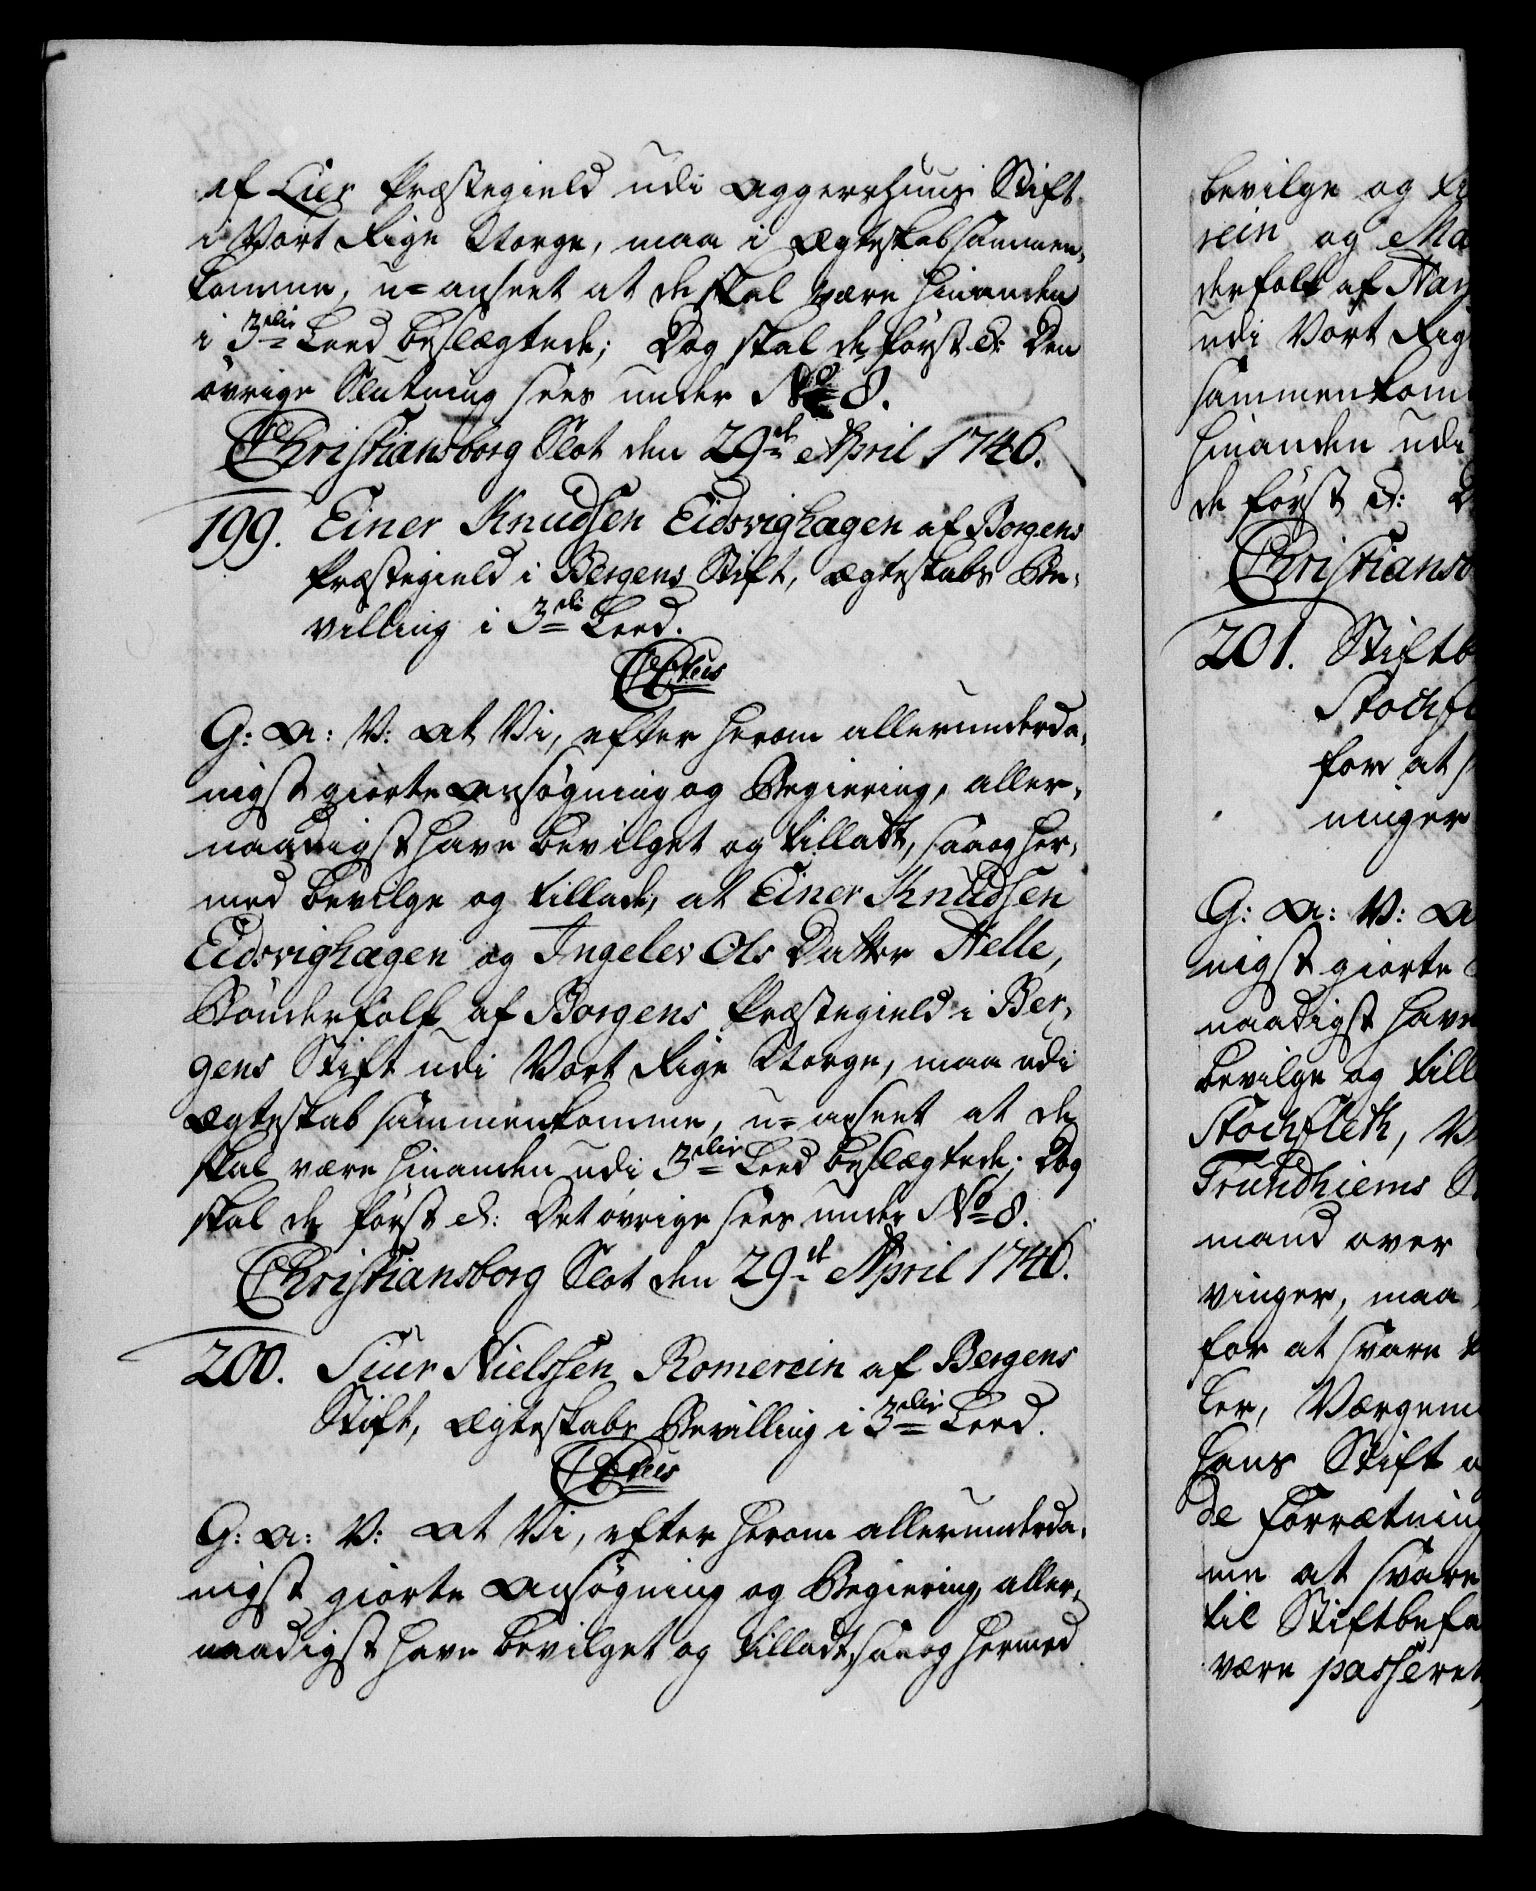 af Lier Præstegield udi Aggershuus Stift
i Vort Rige Norge, maa i Ægteskab sammen,
komme, u=anseet at de skal være hinanden
i 3die Leed beslægtede; Dog skal de først &: Den
övrige Slutning sees under No 8.
Christiansborg Slot den 29de April 1746.
199. Einer Knudsen Eidsvighagen af Borgens
Præstegield i Bergens Stift, Ægteskabs Be,
villing i 3die Leed.
G: A: V: At Vi, efter herom allerunderda,
nigst giorte Ansøgning og Begiering, aller,
naadigst have bevilget og tilladt, saa og her,
med bevilge og tillade, at Einer Knudsen
Eidsvighagen og Ingelev Ols Datter Helle,
Bönderfolk af Borgens Præstegield i Ber,
gens Stift udi Vort Rige Norge, maa udi
Ægteskab sammenkomme, u=anseet at de
skal være hinanden udi 3die Leed beslægtede; Dog
skal de først &: Det övrige sees under No 8.
Christiansborg Slot den 29de April 1746.
200. Siur Nielssen Romerein af Bergens
Stift, Ægteskabs Bevilling i 3die Leed.
G: A: V: At Vi, efter herom allerunderda,
nigst giorte Ansøgning og Begiering, aller,
naadigst have bevilget og tilladt, saa og hermed
bevilge og
rein og Ma
derfolk af
udi Vort Rig
sammenkom
hinanden udi
de först &:
Christiansb
201. Stiftb
Stochfl
for at
ninger
G: A: V: A
nigst giorte
naadigst have
bevilge og till
Stochfleth, V
Trundhiems
mand over
vinger, maa
for at svare
ler, Værgem
hans Stift
de Forrætning
me at svare
til Stiftbefa
være passeret